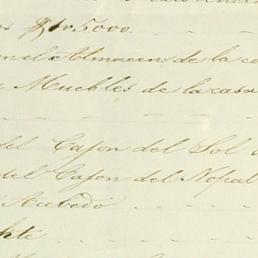 5000.
en el Almacen de la co
Muebles de la casa
del Cajon del Sol
del Cajon del Nopal
Acebedo